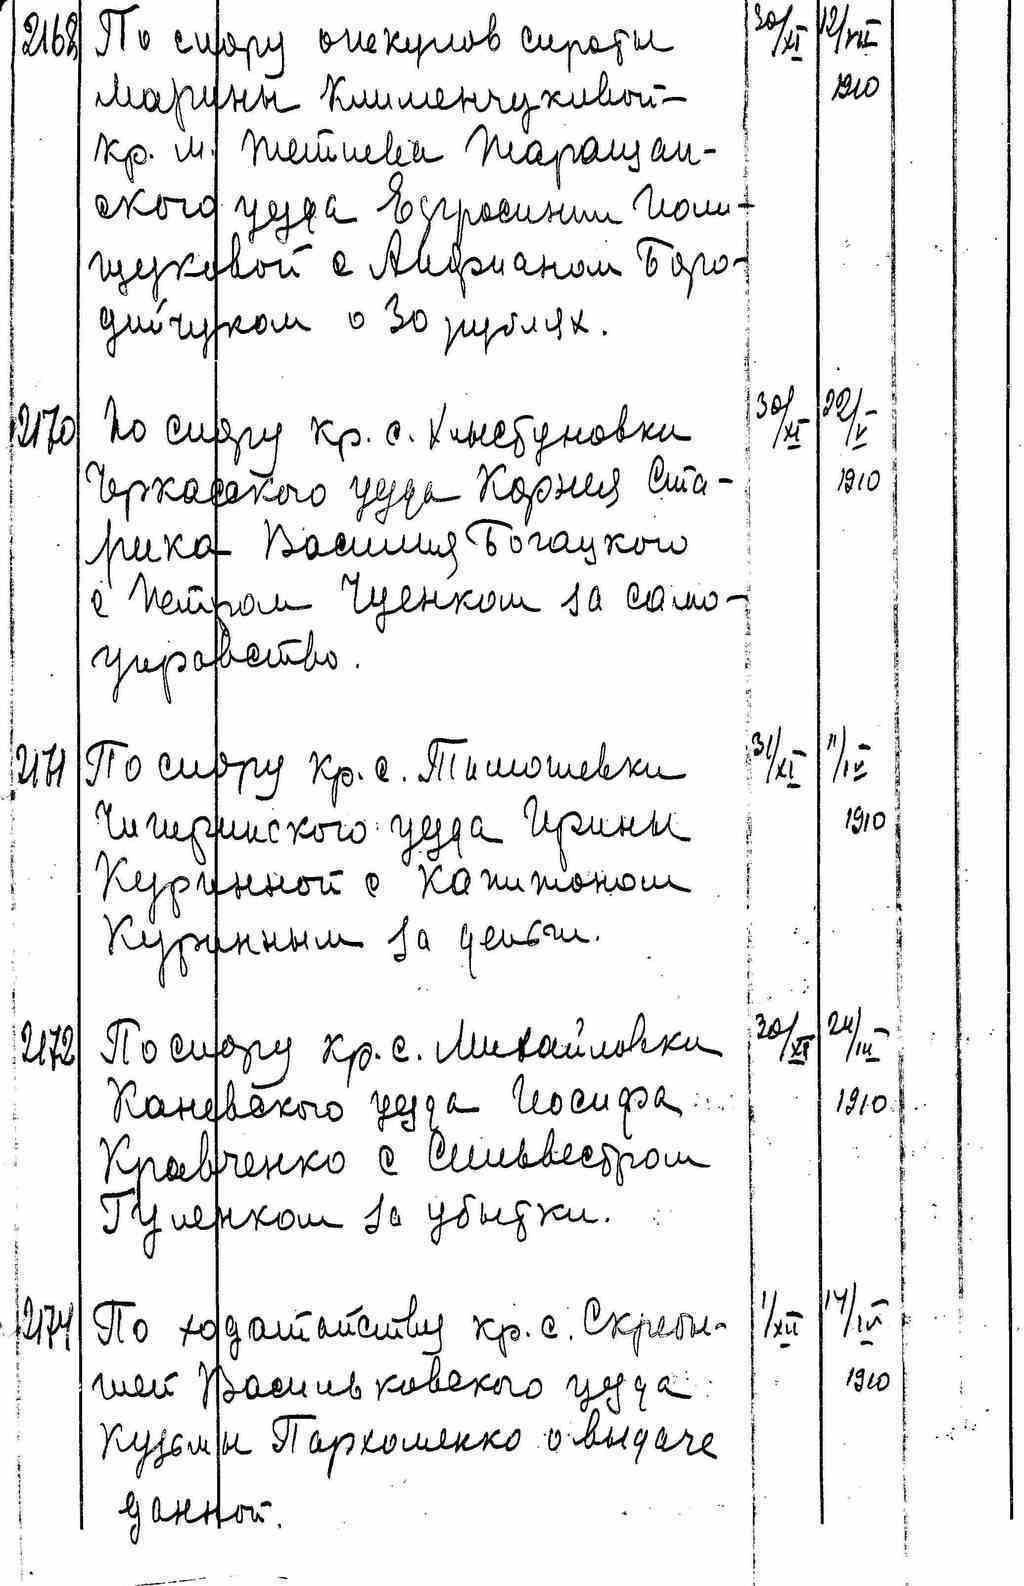 2168 По спору опекунов сироты 30/XI 12/VII
Марины Клименчуковой- 1910
кр. м. Тетиева Таращан-
ского уезда Евфросинии Поли-
щуковой с Андрианом Боро-
дийчуком о 30 рублях.
2170 По спору кр. с. Хлыстуновки 30/XI 22/V
Черкасского уезда Корнея Ста- 1910
рика Василия Богацкого
с Петром Чуенком за само-
управство.
2171 По спору кр. с. Тимошевки 31/XI 11/IV
Чигиринского уезда Ирины 1910
Куринной с Капитоном
Куринным за деньги.
2172 По спору кр. с. Михайловки 30/XI 24/III
Каневского уезда Иосифа 1910
Кравченко с Сильвестром
Гуленком за убытки.
2174 По ходатайству кр. с. Скребы- 1/XII 14/IV
шей Васильковского уезда 1910
Кузьмы Пархоменко о выдаче
данной.